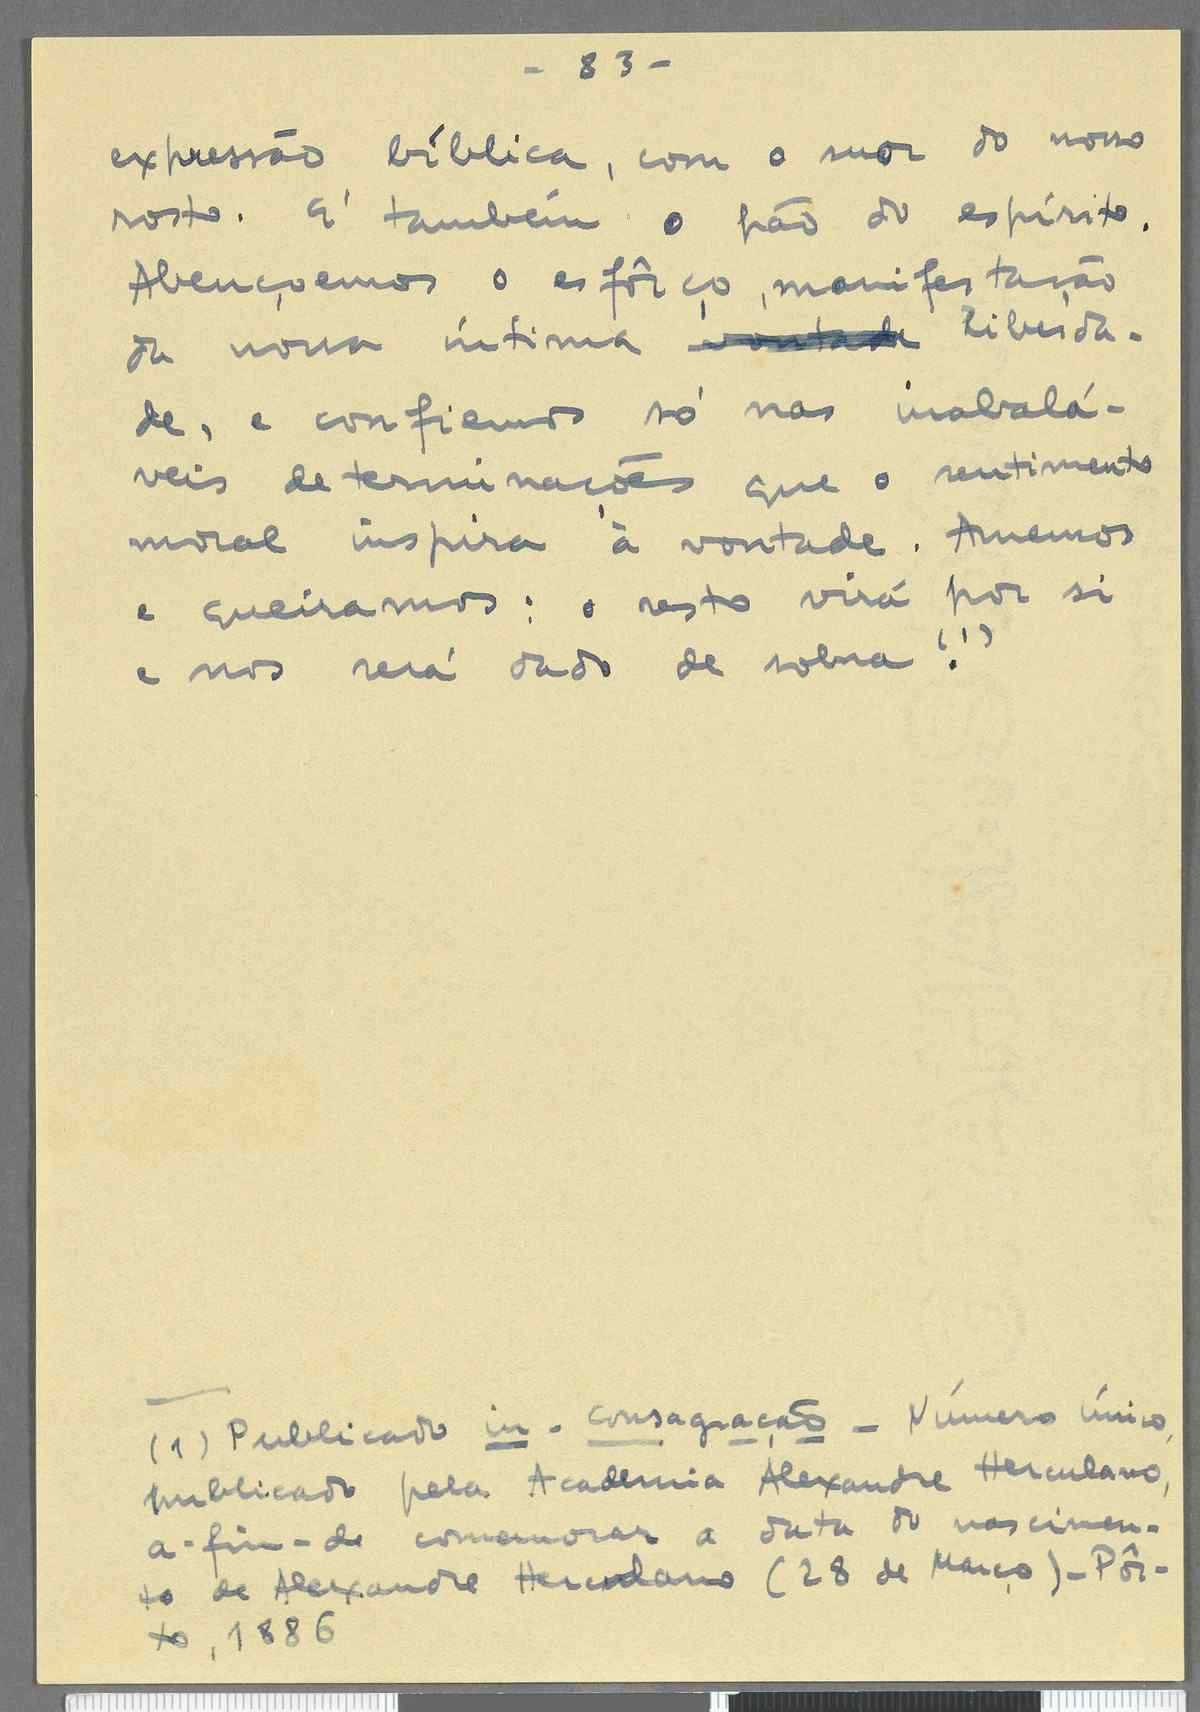 - 83 -
expressão bíblica, com o suor do nosso
rosto. E' também o pão do espírito.
Abençoemos o esfôrço, manifestação
da nossa íntima vontade liberda-
de, e confiemos só nas inabalá-
veis determinações que o sentimento
moral inspira à vontade. Amemos
e queiramos: o resto virá por si
e nos será dado de sobra!(1)
(1) Publicado in - Consagração - Número único,
publicado pela Academia Alexandre Herculano,
a-fim-de comemorar a data do nascimen-
to de Alexandre Herculano (28 de Março) - Pôr-
to, 1886